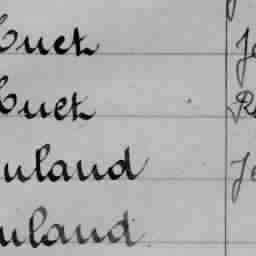 Cuet Je
Cuet R
uland Je
uland